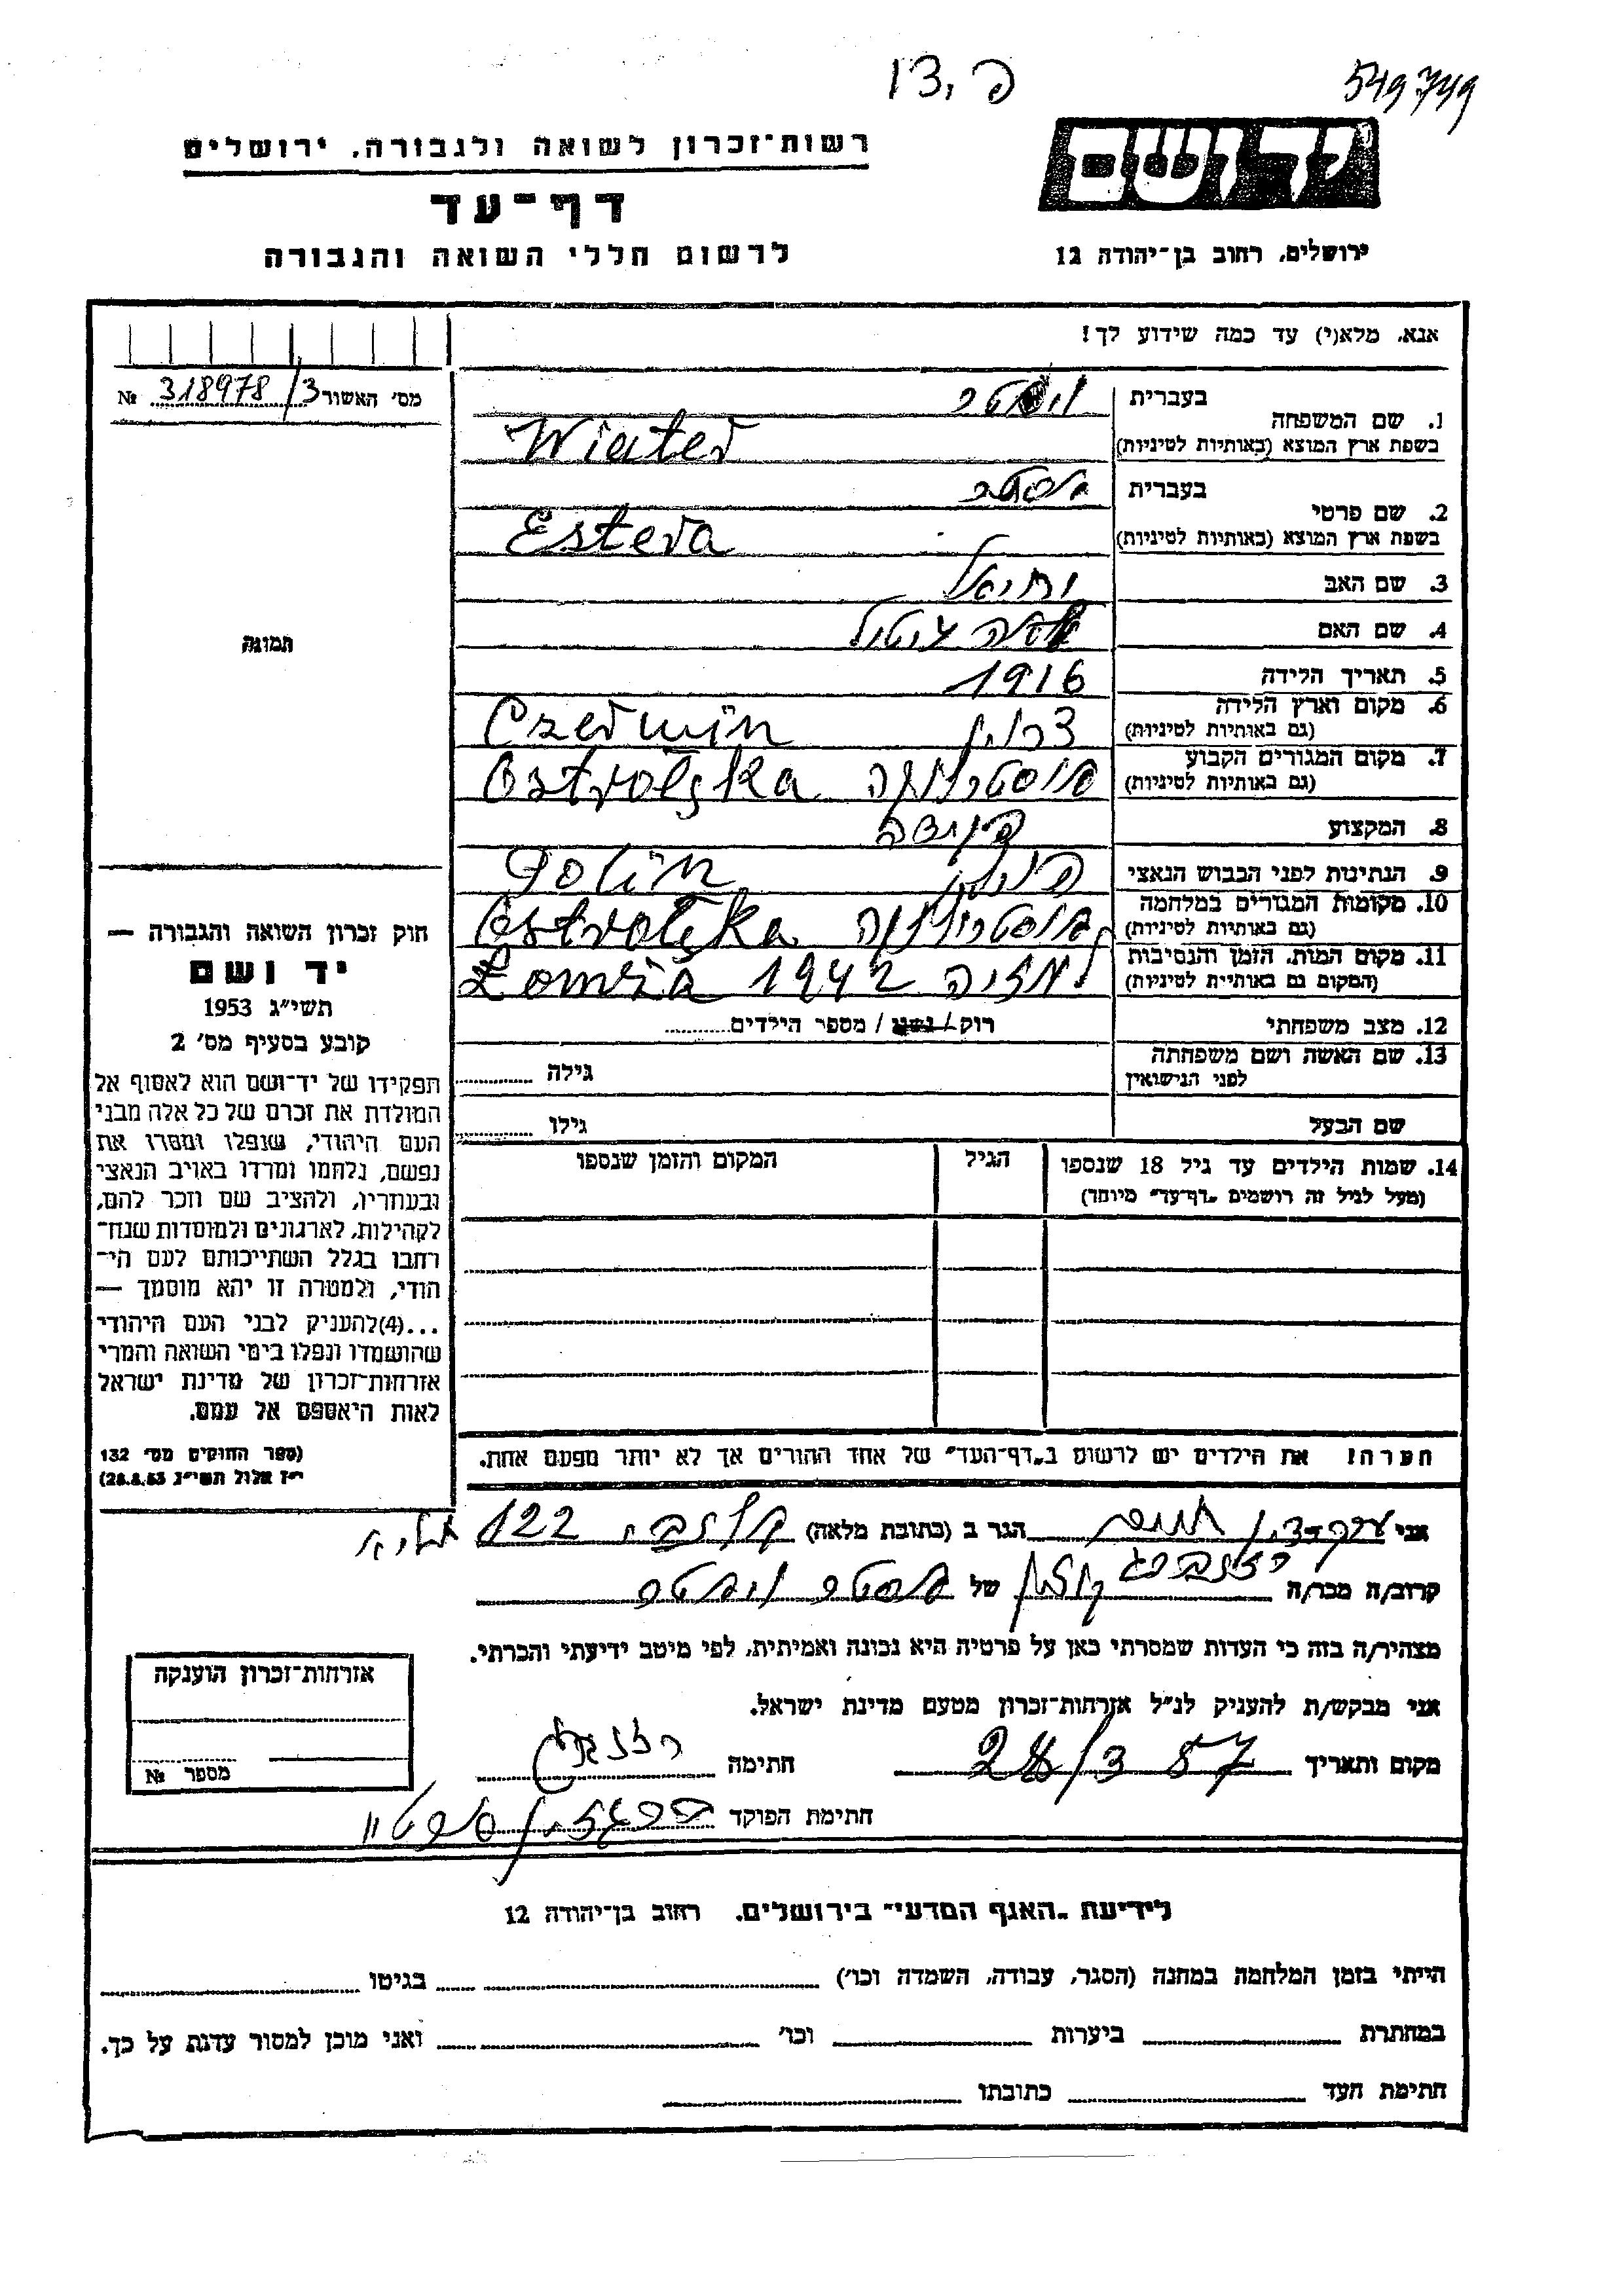 פ. 13
549749
יד ושם
רשות־זכרון לשואה ולגבורה, ירושלים
דף־עד
לרשום חללי השואה והגבורה
ירושלים, רחוב בן־יהודה 12
אנא, מלא(י) עד כמה שידוע לך!
מס' האשור 318978/3 №
1. שם המשפחה
בעברית
בשפת ארץ המוצא (באותיות לטיניות) Wiater
2. שם פרטי
בעברית אסטר
בשפת ארץ המוצא (באותיות לטיניות) Estera
3. שם האב יחיאל
4. שם האם
5. תאריך הלידה 1916
6. מקום וארץ הלידה Czerwin
(גם באותיות לטיניות)
7. מקום המגורים הקבוע אוסטרולנקה Ostrolęka
(גם באותיות לטיניות)
8. המקצוע
9. הנתינות לפני הכבוש הנאצי פולין Polin
10. מקומות המגורים במלחמה אוסטרולנקה Ostrolęka
(גם באותיות לטיניות)
11. מקום המות, הזמן והנסיבות לומזה 1942 Łomża
(המקום גם באותיית לטיניות)
12. מצב משפחתי רוק / נשוי / מספר הילדים
13. שם האשה ושם משפחתה
לפני הנישואין
גילה
שם הבעל
גילו
14. שמות הילדים עד גיל 18 שנספו
(מעל לגיל זה רושמים „דף־עד" מיוחד)
הגיל
המקום והזמן שנספו
תמונה
חוק זכרון השואה והגבורה —
יד ושם
תשי"ג 1953
קובע בסעיף מס' 2
תפקידו של יד־ושם הוא לאסוף אל
המולדת את זכרם של כל אלה מבני
העם היהודי, שנפלו ומסרו את
נפשם, נלחמו ומרדו באויב הנאצי
ובעוזריו, ולהציב שם וזכר להם,
לקהילות, לארגונים ולמוסדות שנח־
רבו בגלל השתייכותם לעם הי־
הודי, ולמטרה זו יהא מוסמך —
...(4)להעניק לבני העם היהודי
שהושמדו ונפלו בימי השואה והמרי
אזרחות־זכרון של מדינת ישראל
לאות היאספם אל עמם.
(ספר החוקים מס' 132
י"ז אלול תשי"ג 28.8.53)
הערה! את הילדים יש לרשום ב„דף־העד" של אחד ההורים אך לא יותר מפעם אחת.
אני
הגר ב (כתובת מלאה) 122
קרוב/ה מכר/ה
של אסטר
מצהיר/ה בזה כי העדות שמסרתי כאן על פרטיה היא נכונה ואמיתית, לפי מיטב ידיעתי והכרתי.
אני מבקש/ת להעניק לנ"ל אזרחות־זכרון מטעם מדינת ישראל.
מקום ותאריך 28/3 57
חתימה
חתימת הפוקד
אזרחות־זכרון הוענקה
מספר №
לידיעת „האגף המדעי" בירושלים, רחוב בן־יהודה 12
הייתי בזמן המלחמה במחנה (הסגר, עבודה, השמדה וכו') בגיטו
במחתרת ביערות וכו' ואני מוכן למסור עדות על כך.
חתימת העד כתובתו